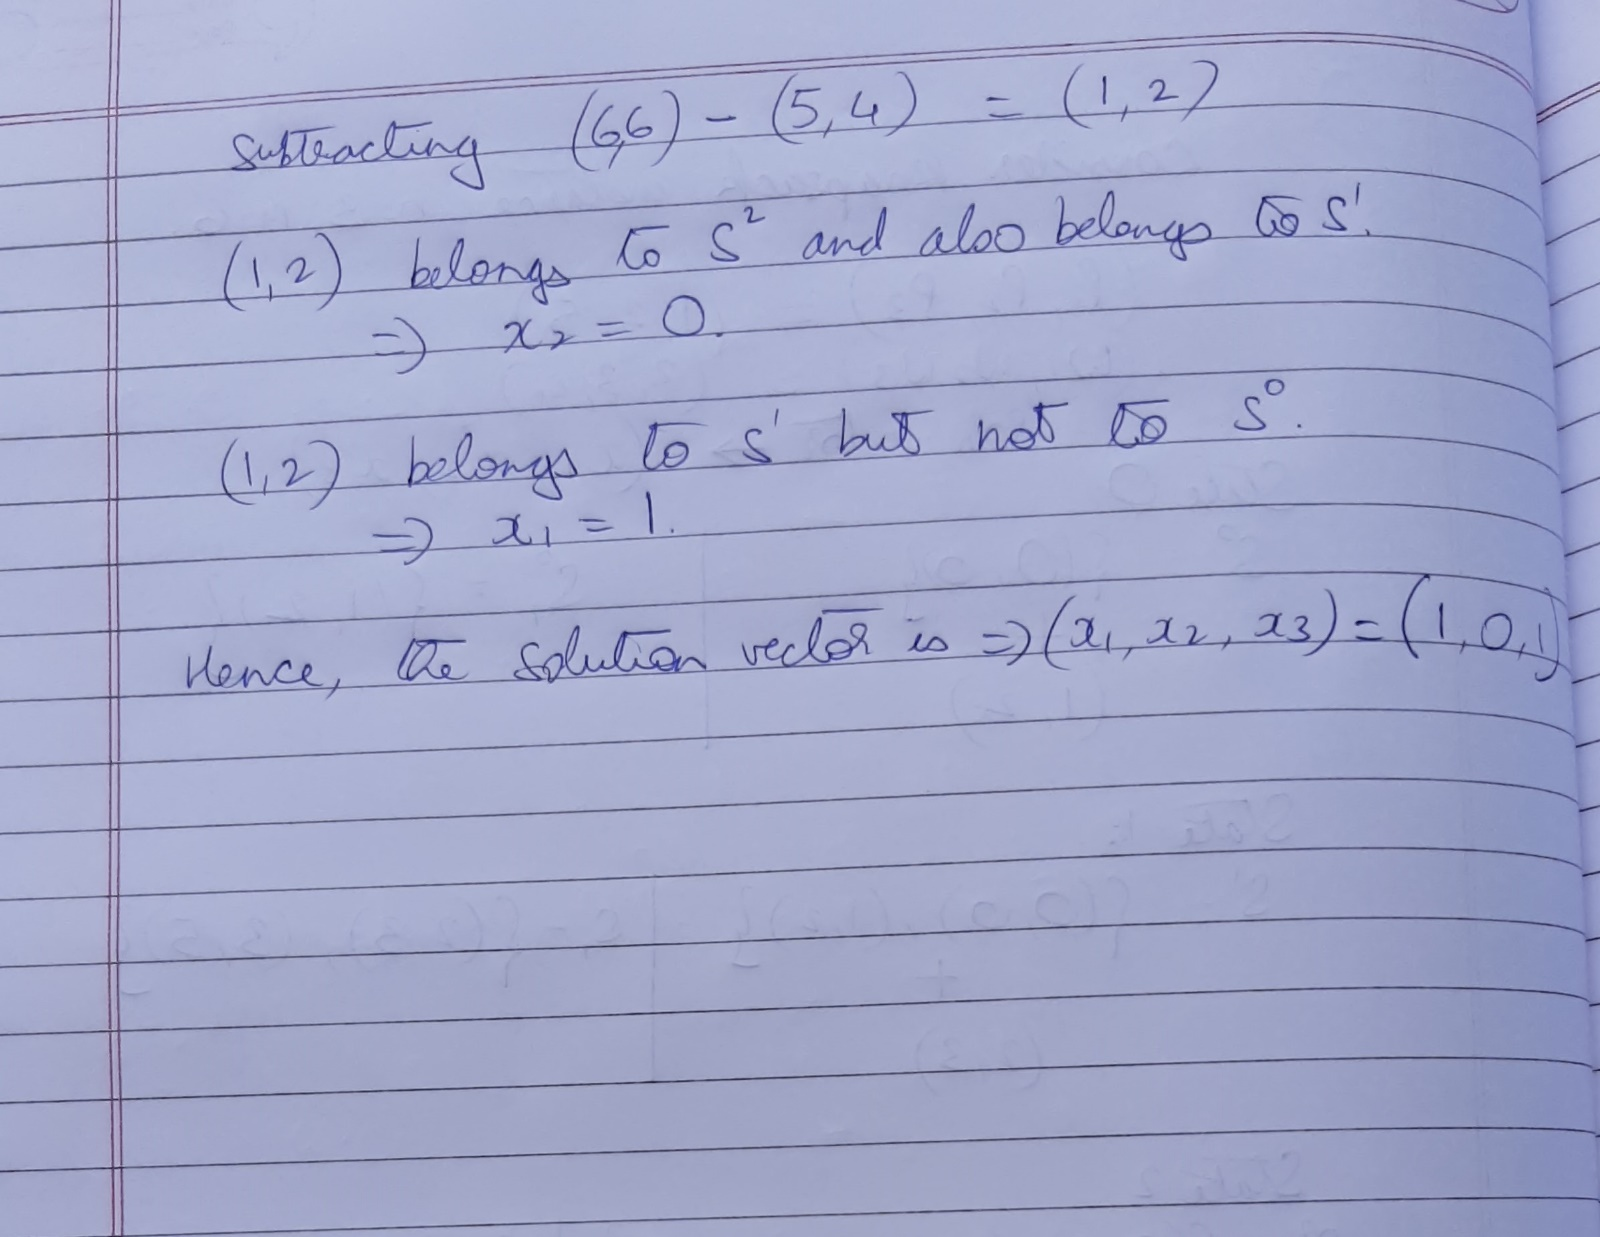 Subtracting (6,6) - (5,4) = (1,2)
(1,2) belongs to S² and also belongs to S¹.
=> x₂ = 0.
(1,2) belongs to S¹ but not to S⁰.
=> x₁ = 1.
Hence, the solution vector is => (x₁, x₂, x₃) = (1,0,1)